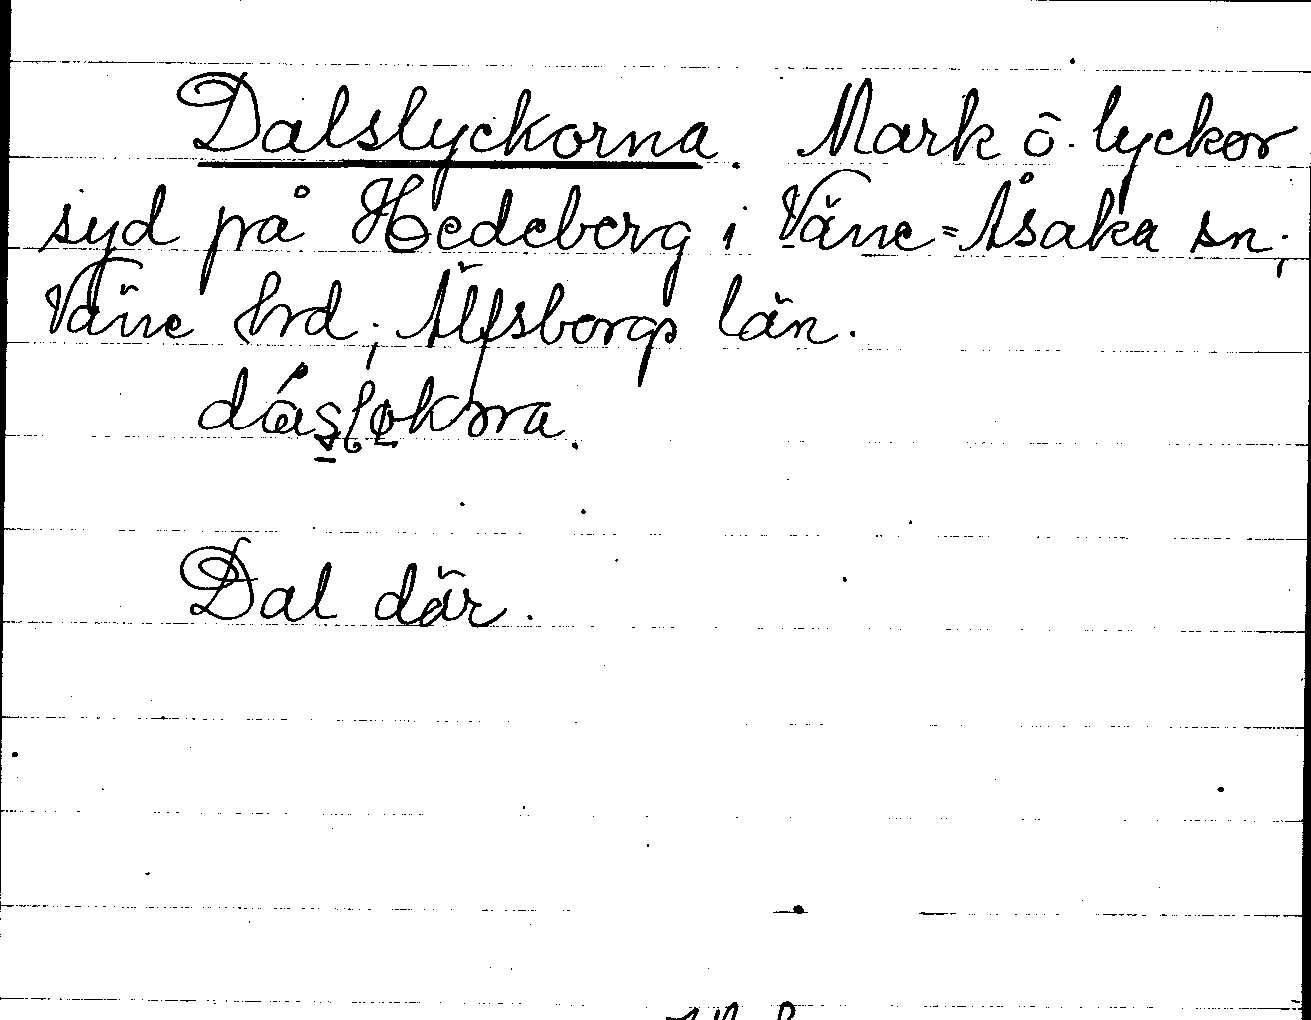 Dalslyckorna. Mark ö. lyckor
syd på Hedeberg i Väne=Åsaka sn,
Väne hrd, Älfsborgs län.
Dal där.